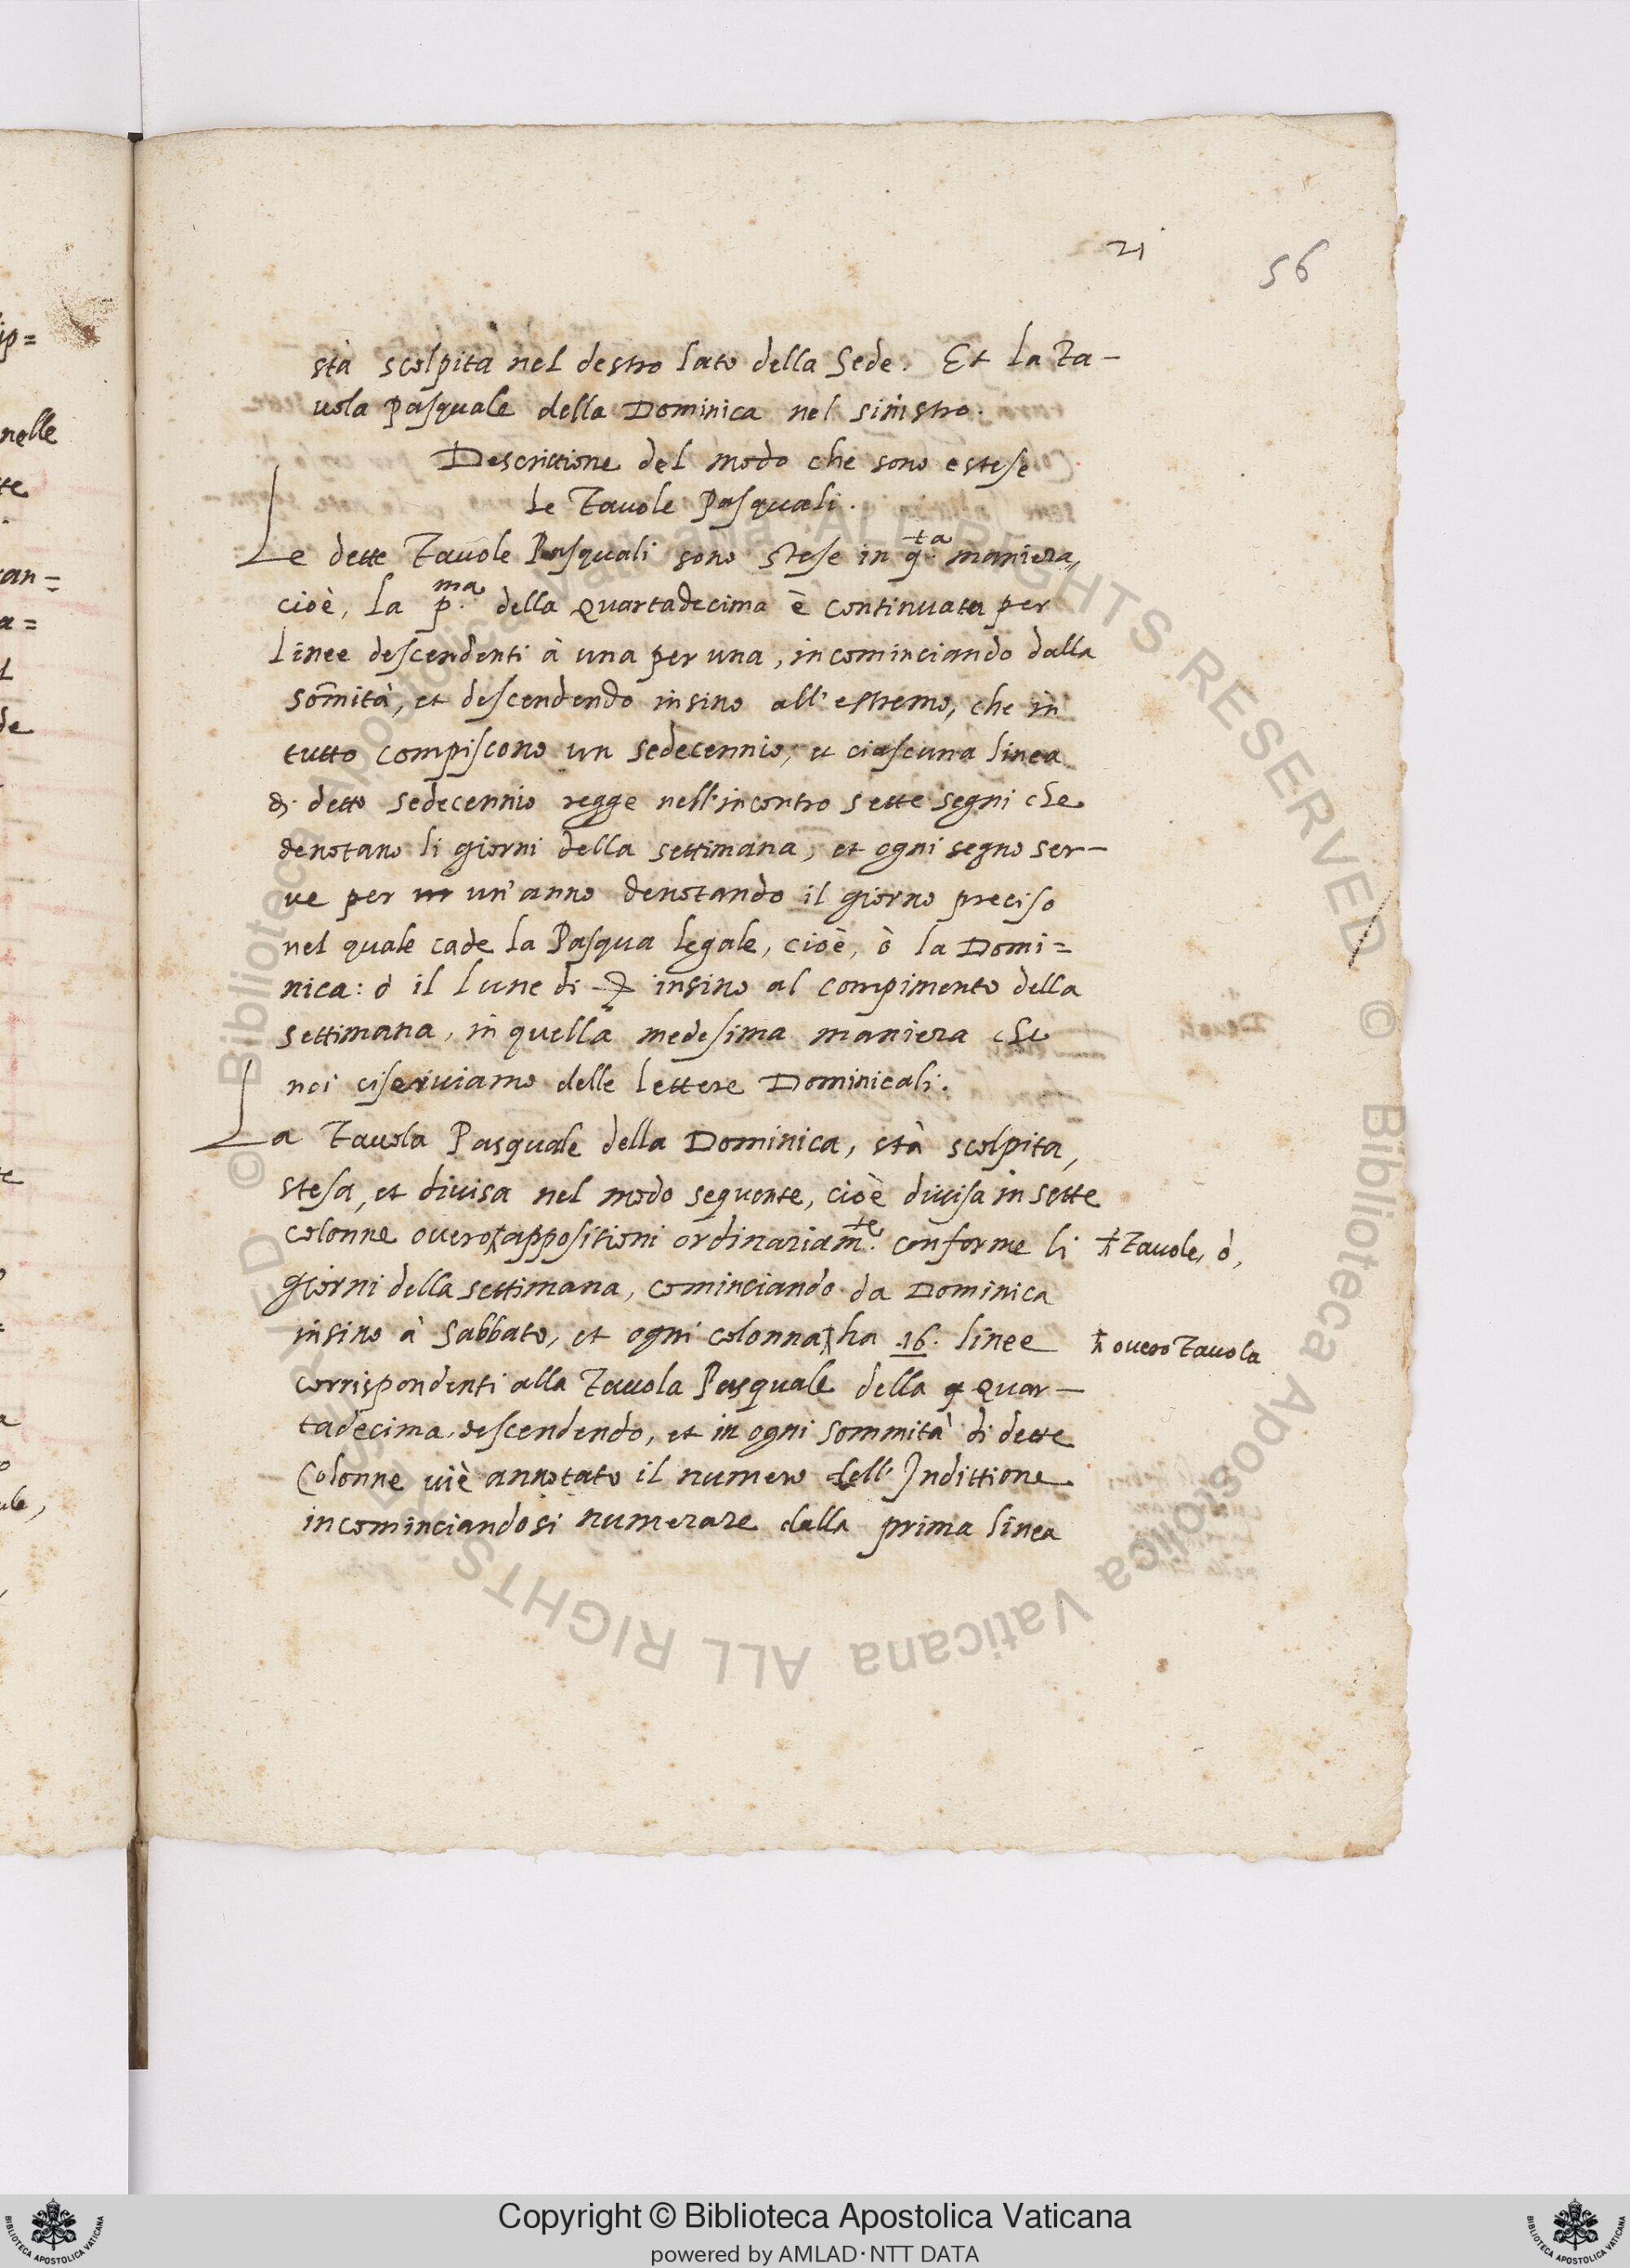 21
56
stà scolpita nel destro lato della Sede. Et la Ta-
uola Pasquale della Dominica nel sinistro.
Descrittione del modo che sono estese
le Tauole Pasquali.
Le dette Tauole Pasquali sono stese in q.ta maniera,
cioè, la p.ma della Quartadecima è continuata per
linee descendenti à una per una, incominciando dalla
som̄ità, et descendendo insino all'estremo, che in
tutto compiscono un sedecennio, et ciascuna linea
di detto sedecennio regge nell'incontro sette segni che
denotano li giorni della settimana, et ogni segno ser-
ue per un'anno denotando il giorno preciso
nel quale cade la Pasqua legale, cioè, ò la Domi=
nica: ò il Lune di insino al compimento della
settimana, in quella medesima maniera che
noi ci seruiamo delle lettere Dominicali.
La Tauola Pasquale della Dominica, stà scolpita,
stesa, et diuisa nel modo seguente, cioè diuisa in sette
colonne ouero appositioni ordinariam.te conforme li
Tauole, ò,
giorni della settimana, cominciando da Dominica
insino à Sabbato, et ogni colonna ha .16. linee
ouero Tauola
corrispondenti alla Tauola Pasquale della Quar-
tadecima descendendo, et in ogni sommità di dette
Colonne uiè annotato il numero dell'Indittione
incominciandosi numerare dalla prima linea
ip=
nelle
te
an=
a=
de
ule,
© Biblioteca Apostolica Vaticana ALL RIGHTS RESERVED © Biblioteca Apostolica Vaticana ALL RIGHTS RESERVED
Copyright © Biblioteca Apostolica Vaticana
powered by AMLAD・NTT DATA
BIBLIOTECA APOSTOLICA VATICANA
BIBLIOTECA APOSTOLICA VATICANA